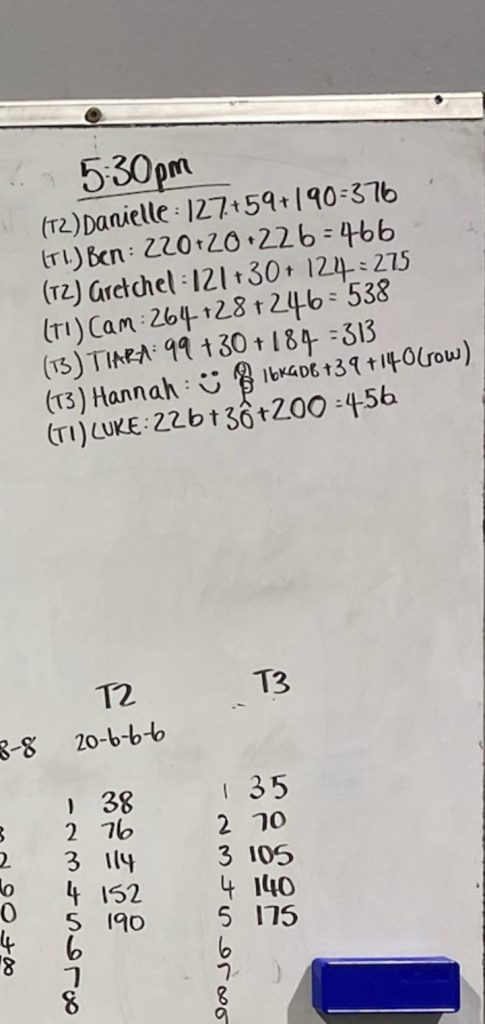 5:30pm
(T2) Danielle: 127+59+190=376
(T1.) Ben: 220+20+226=466
(T2) Gretchel: 121+30+124=275
(T1) Cam: 264+28+246=538
(T3) TIARA: 99+30+184=313
(T3) Hannah: 16KGDB+39+140(row)
(T1) LUKE: 226+30+200=456
T2 T3
8-8 20-6-6-6
1 38 1 35
2 76 2 70
3 114 3 105
4 152 4 140
5 190 5 175
6 6
7 7
8 8
9